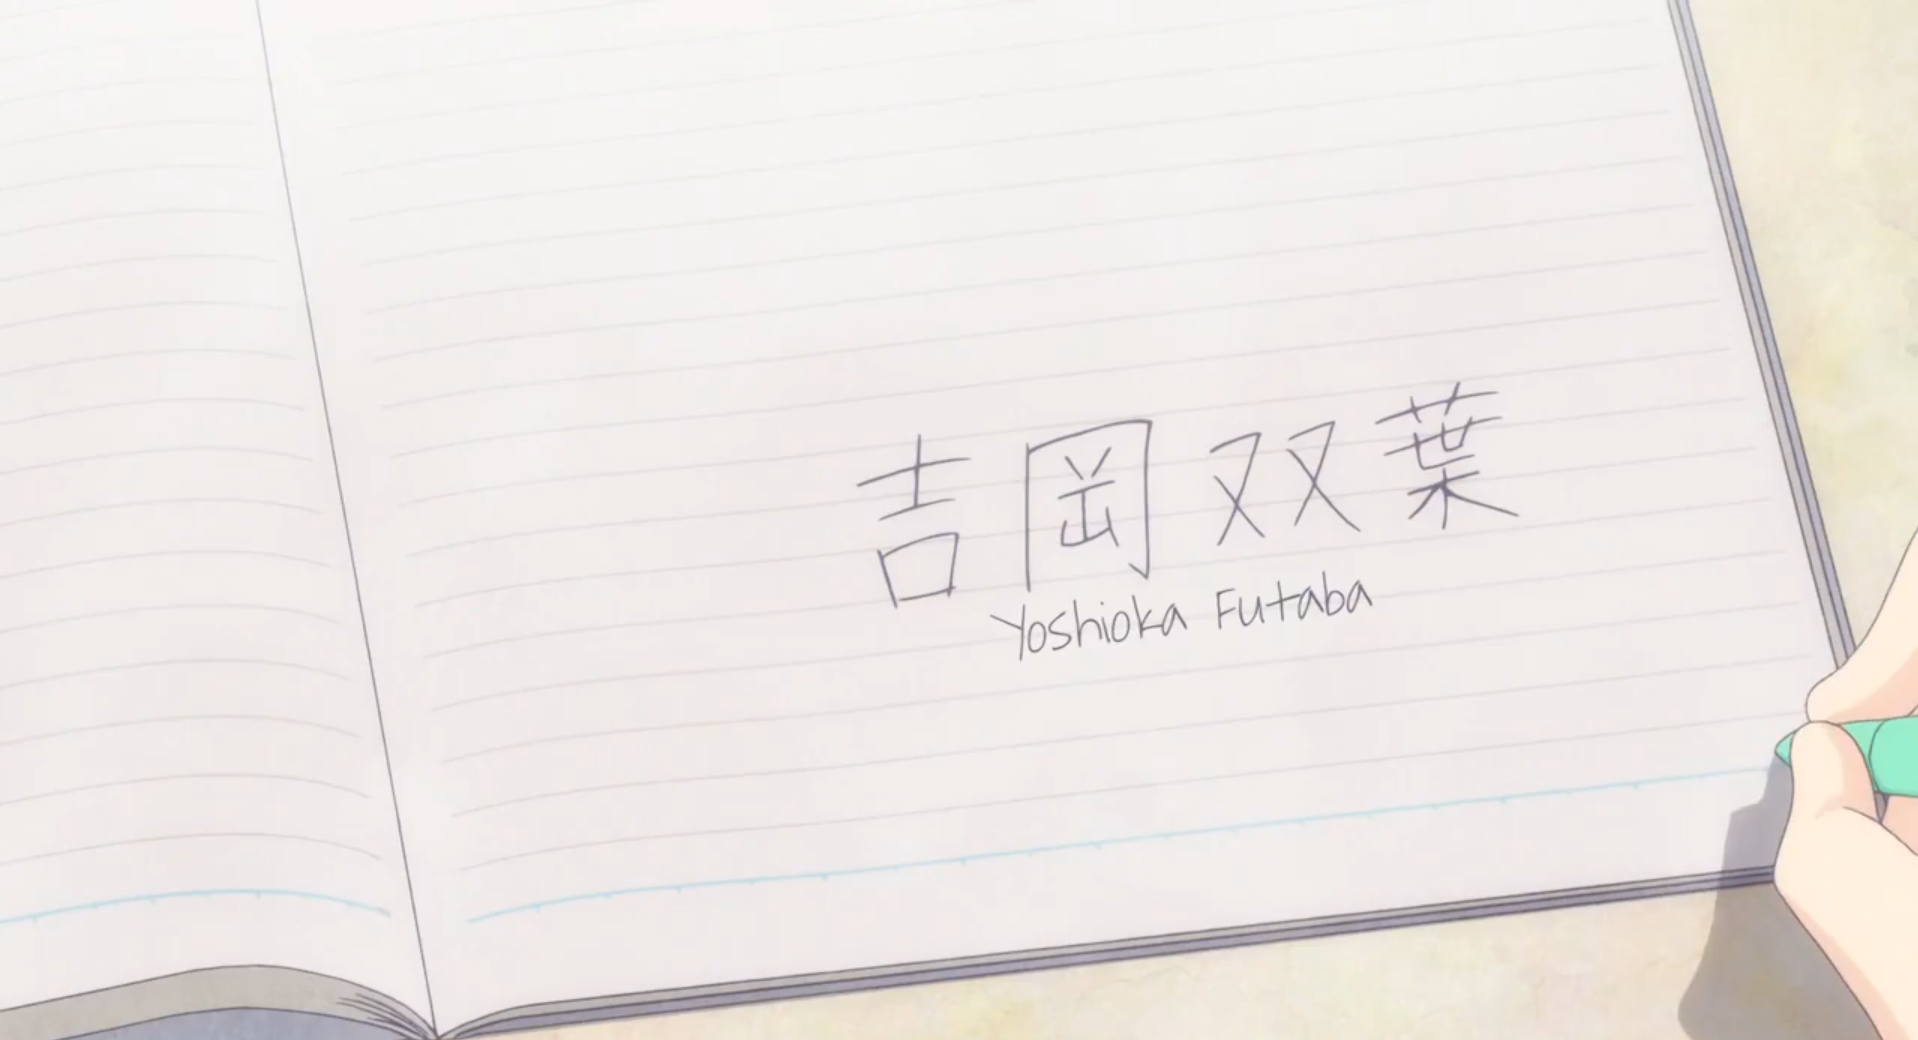 吉岡双葉
Yoshioka Futaba